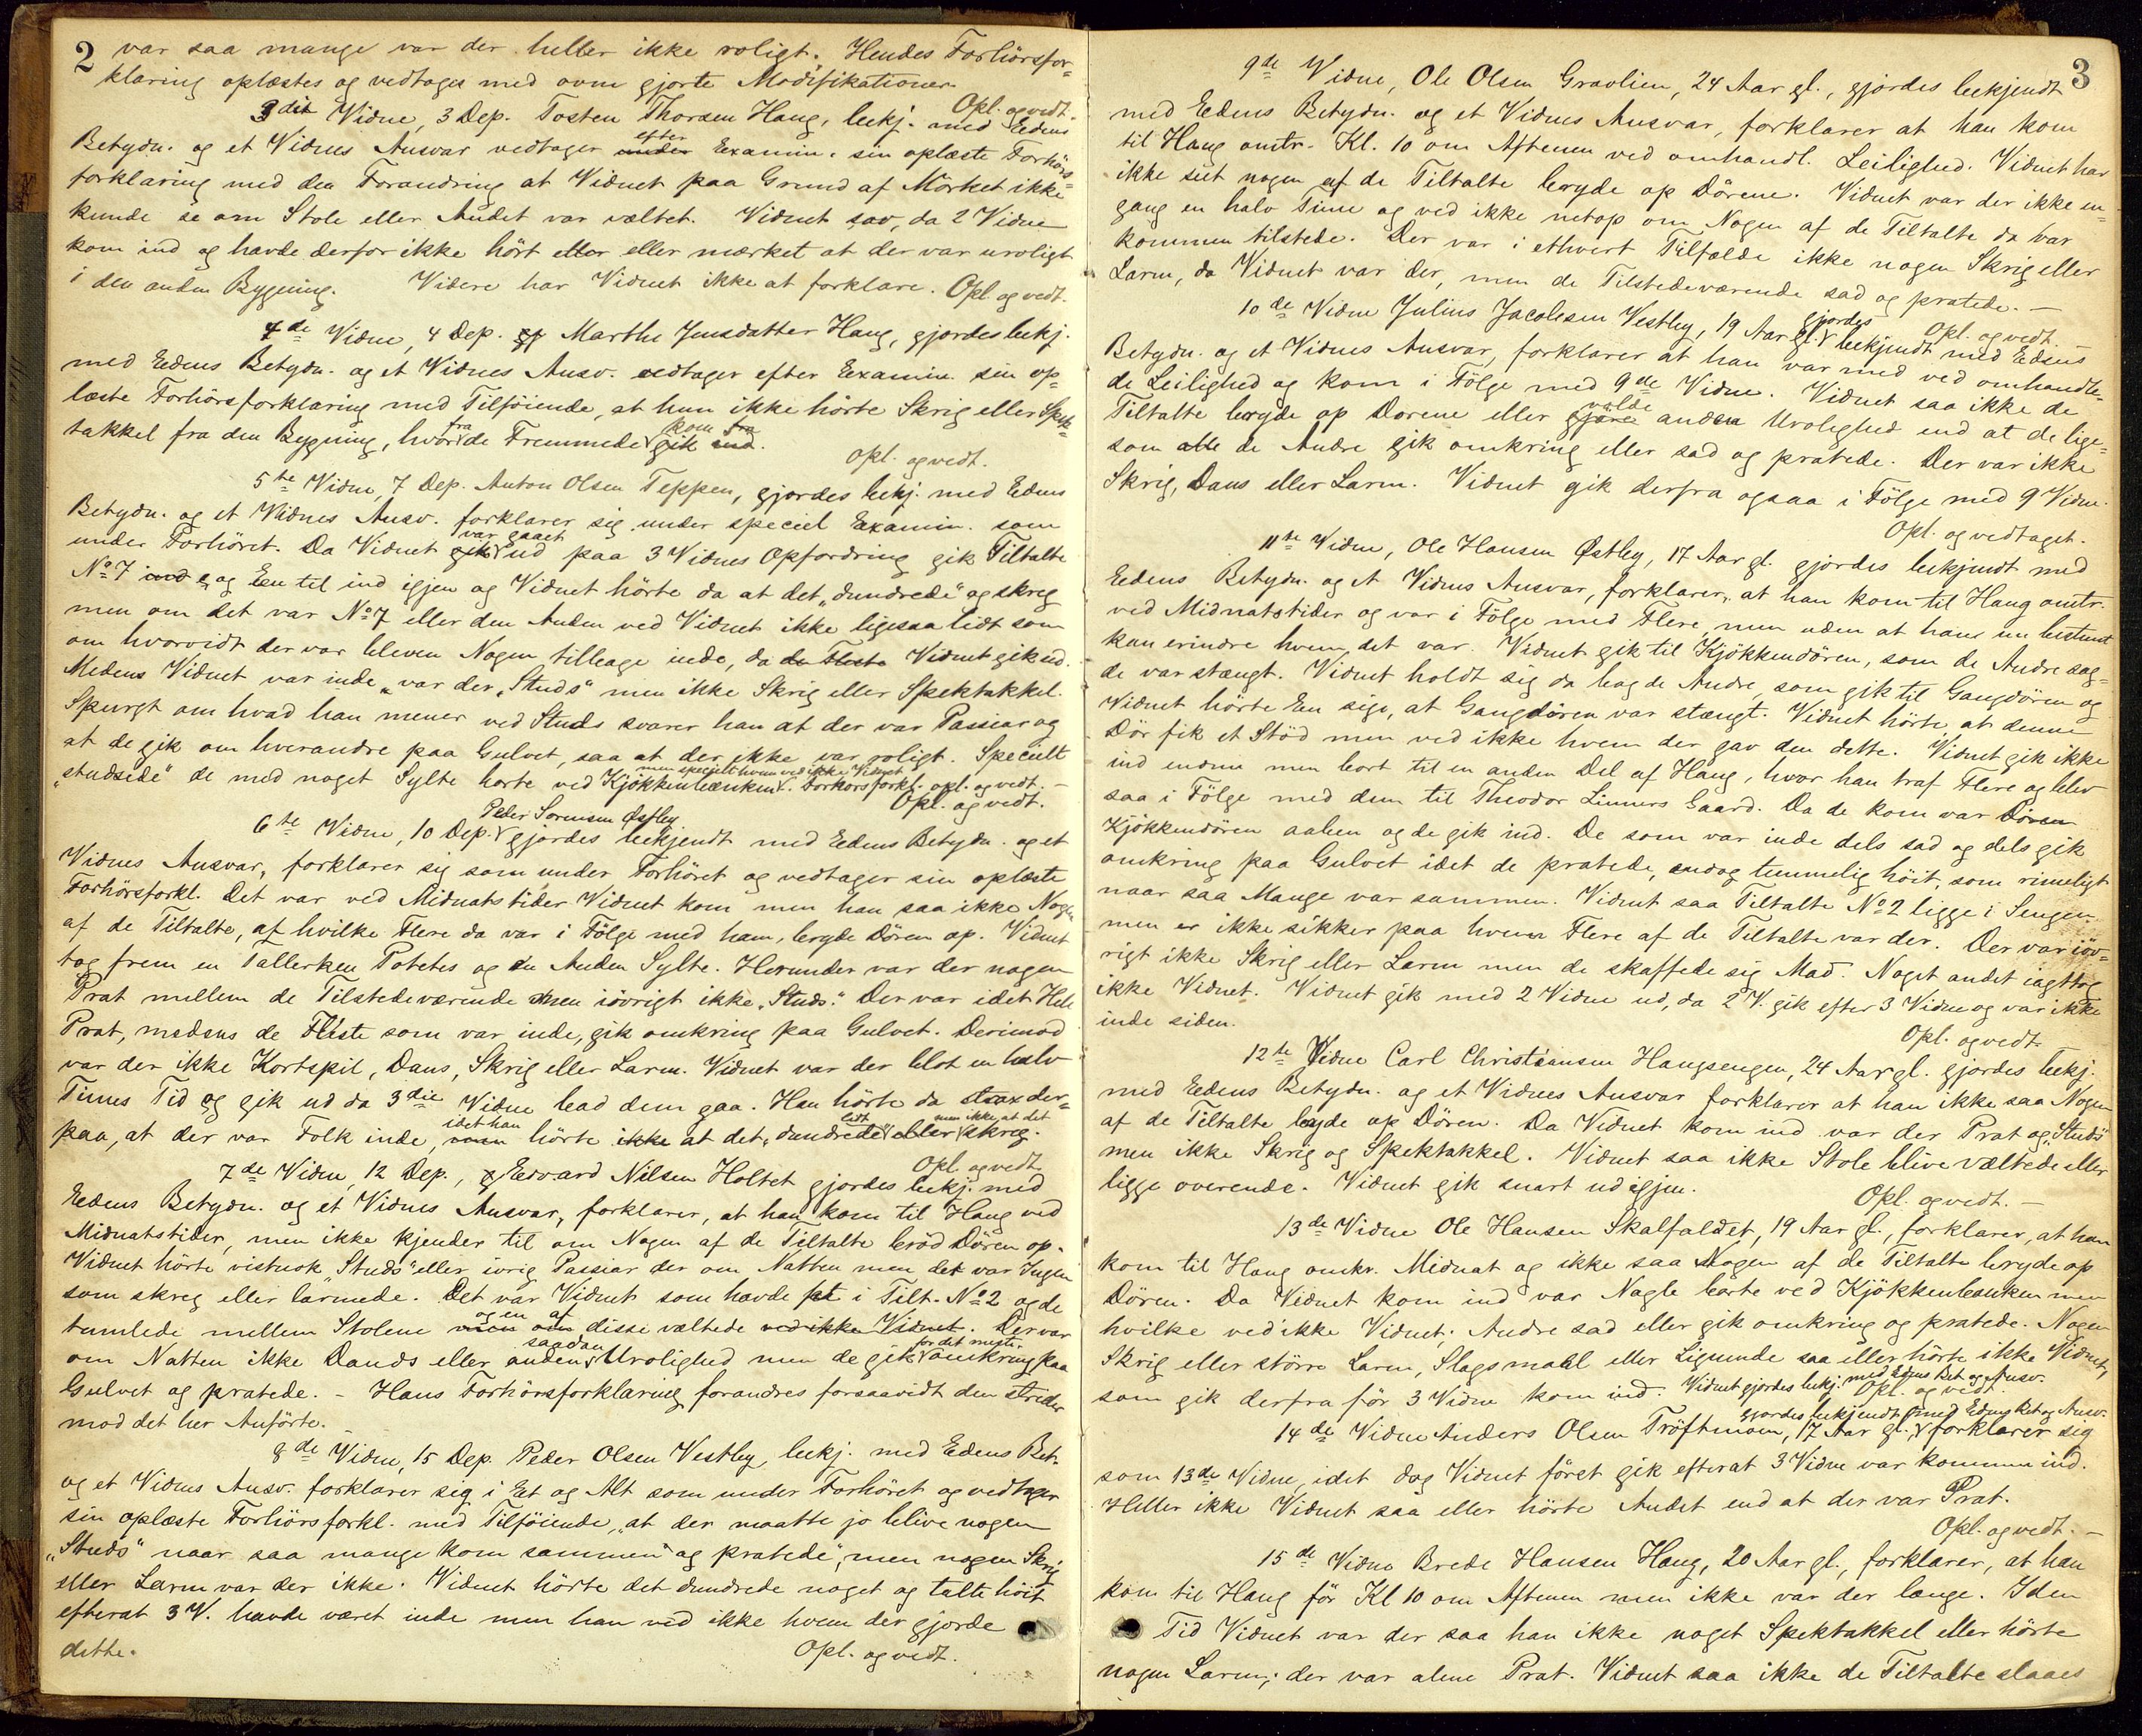 2
var saa mange var der heller ikke roligt. Hendes Forhörsfor=
klaring oplæstes og vedtoges med ovm gjorte Modifikationer.
Opl. og vedt.
3die Vidne, 3 Dep. Tosten Thorsen Haug, bekj. med Edens
Betydn. og et Vidnes Ansvar vedtager under efter Examin. sin oplæste Forhörs=
forklaring med den Forandring at Vidnet paa Grund af Mörket ikke
kunde se om Stole eller Andet var væltet. Vidnet sov, da 2 Vidne
kom ind og havde derfor ikke hört eller eller mærket at der var uroligt
i den anden Bygning. Videre har Vidnet ikke at forklare. Opl og vedt.
4de Vidne, 4 Dep. gj Marthe Jensdatter Haug, gjordes bekj.
med Eedens Betydn. og et Vidnes Ansv. vedtager efter Examin. sin op=
læste Forhörsforklaring med Tilföiende, at hun ikke hörte Skrig eller Spek=
takkel fra den Bygning, hvorfra de Fremmede kom fra gik ind.
Opl. og vedt.
5te Vidne, 7 Dep. Anton Olsen Teppen, gjordes bekj. med Edens
Betydn. og et Vidnes Ansv. forklarer sig under speciel Examin. som
under Forhöret. Da Vidnet gik var gaaet ud paa 3 Vidnes Opfordring gik Tiltalte
No 7 ind og Een til ind igjen og Vidnet hörte da at det "dundrede" og skreg
men om det var No 7 eller den Anden ved Vidnet ikke ligesaa lidt som
om hvorvidt der var bleven Nogen tilbage inde, da de Fleste Vidnet gik ud.
Medens Vidnet var inde "var der "Studs" men ikke Skrig eller Spektakkel.
Spurgt om hvad han mener ved Studs svarer han at der var Passiar og
at de gik om hverandre paa Gulvet, saa at der ikke var roligt. Specielt
"studsede" de med noget Sylte borte ved Kjökkenbænken men specielt hvem ved ikke Vidnet. Forhörsforkl. opl. og vedt. –
Opl. og vedt.
6te Vidne, 10 Dep. Peder Sorensen Østby gjordes bekjendt med Eedens Betydn. og et
Vidnes Ansvar, forklarer sig som under Forhöret og vedtager sin oplæste
Forhörsforkl. Det var ved Midnatstider Vidnet kom men han saa ikke Nogen
af de Tiltalte, af hvilke Flere da var i Fölge med ham, bryde Dören op. Vidnet
tog frem en Tallerken Potetes og en Anden Sylte. Herunder var der nogen
Prat mellem de Tilstedeværende men iövrigt ikke "Studs." Der var idet Hele
Prat, medens de Fleste som var inde, gik omkring paa Gulvet. Derimod
var der ikke Kortspil, Dans, Skrig eller Larm. Vidnet var der blot en halv
Times Tid og gik ud da 3die Vidne bad dem gaa. Han hörte da strax der=
paa, at der var Folk inde, men idet han hörte ikke at det "dundrede" lidt eller men ikke at det skreg.
Opl. og vedt.
7de Vidne, 12 Dep., g Edvard Nilsen Holtet gjordes bekj. med
Eedens Betydn. og et Vidnes Ansvar, forklarer, at han kom til Haug ved
Midnatstider, men ikke kjender til om Nogen af de Tiltalte bröd Dören op.
Vidnet hörte vistnok "Studs" eller ivrig Passiar der om Natten men det var Ingen
som skreg eller larmede. Det var Vidnet som havde fat i Tilt. No 2 og de
tumlede mellem Stolene men om og en af disse væltede ved ikke Vidnet. Der var
om Natten ikke Dands eller anden saadan Urolighed men de gik for det meste omkring paa
Gulvet og pratede. – Hans Forhörsforklaring forandres forsaavidt den strider
mod det her Anförte.
8de Vidne, 15 Dep. Peder Olsen Vestby, bekj. med Edens Bet.
og et Vidnes Ansv. forklarer sig i Et og Alt som under Forhöret og vedtager
sin oplæste Forhörsforkl. med Tilföiende, "at der maatte jo blive nogen
"Studs" naar saa mange kom sammen og pratede", men nogen Skrig
eller Larm var der ikke. Vidnet hörte det dundrede noget og talte höit
efterat 3 V. havde været inde men han ved ikke hvem der gjorde
dette.
Opl. og vedt.
3
9de Vidne, Ole Olsen Graolien, 24 Aar gl., gjordes bekjendt
med Edens Betydn. og et Vidnes Ansvar, forklarer at han kom
til Haug omtr. Kl. 10 om Aftenen ved omhandl. Leilighed. Vidnet har
ikke seet nogen af de Tiltalte bryde op Dörene. Vidnet var der ikke en=
gang en halv Time og ved ikke netop om Nogen af de Tiltalte da var
kommen tilstede. Der var i ethvert Tilfælde ikke nogen Skrig eller
Larm, da Vidnet var der, men de Tilstedeværende sad og pratede. –
Opl. og vedt.
10de Vidne Julius Jacobsen Vestby, 19 Aar gl. gjordes bekjendt med Edens
Betydn. og et Vidnes Ansvar, forklarer at han var med ved omhandle=
de Leilighed og kom i Fölge med 9de Vidne. Vidnet saa ikke de
Tiltalte bryde op Dorene eller gjöre volde anden Urolighed end at de lige=
som alle de Andre gik omkring eller sad og pratede. Der var ikke
Skrig, Dans eller Larm. Vidnet gik derfra ogsaa i Fölge med 9 Vidne.
Opl. og vedtaget.
11te Vidne, Ole Hansen Østby, 17 Aar gl. gjordes bekjendt med
Eedens Betydn. og et Vidnes Ansvar, forklarer, at han kom til Haug omtr.
ved Midnatstider og var i Fölge med Flere, men uden at han nu bestemt
kan erindre hvem det var. Vidnet gik til Kjökkendören, som de Andre sag=
de var stængt. Vidnet holdt sig da bag de Andre, som gik til Gangdören og
Vidnet hörte En sige, at Gangdören var stængt. Vidnet hörte, at denne
Dör fik et Stöd men ved ikke hvem der gav den dette. Vidnet gik ikke
ind endnu men bort til en anden Del af Haug, hvor han traf Flere og blev
saa i Fölge med dem til Theodor Linners Gaard. Da de kom var Dören
Kjökkendören aaben og de gik ind. De som var inde dels sad og dels gik
omkring paa Gulvet idet de pratede, endog temmelig höit, som rimeligt
naar saa Mange var sammen. Vidnet saa Tiltalte No 2 ligge i Sengen
men er ikke sikker paa hvem Flere af de Tiltalte var der. Der var iöv=
rigt ikke Skrig eller Larm men de skaffede sig Mad. Noget andet iagttog
ikke Vidnet. Vidnet gik med 2 Vidne ud, da 2 V. gik efter 3 Vidne og var ikke
inde siden.
Opl. og vedt.
12te Vidne Carl Christiansen Haugsengen, 24 Aar gl. gjordes bekj.
med Eedens Betydn. og et Vidnes Ansvar forklarer at han ikke saa Nogen
af de Tiltalte bryde op Dören. Da Vidnet kom ind var der Prat og "Studs"
men ikke Skrig og Spektakkel. Vidnet saa ikke Stole blive væltede eller
ligge overende. Vidnet gik snart ud igjen.
Opl. og vedt. –
13de Vidne Ole Hansen Skalfaldet, 19 Aar gl., forklarer, at han
kom til Haug omkr. Midnat og ikke saa Nogen af de Tiltalte bryde op
Dören. Da Vidnet kom ind var Nogle borte ved Kjökkenbænken men
hvilke ved ikke Vidnet. Andre sad eller gik omkring og pratede. Nogen
Skrig eller större Larm, Slagsmaal eller Lignende saa eller hörte ikke Vidnet,
som gik derfra för 3 Vidne kom ind. Vidnet gjordes bekj. med Edens Bet og Ansv.
Opl. og vedt.
14de Vidne Anders Olsen Tröftmoen, 17 Aar gl., gjordes bekjendt med Edens Bet og Ansv. forklarer sig
som 13de Vidne, idet dog Vidnet förat gik efterat 3 Vidne var kommen ind.
Heller ikke Vidnet saa eller hörte Andet end at der var Prat.
Opl. og vedt. –
15de Vidne Brede Hansen Haug, 20 Aar gl., forklarer, at han
kom til Haug för Kl 10 om Aftenen men ikke var der længe. I den
Tid Vidnet var der saa han ikke noget Spektakkel eller hörte
nogen Larm; der var alene Prat. Vidnet saa ikke de Tiltalte slaaes